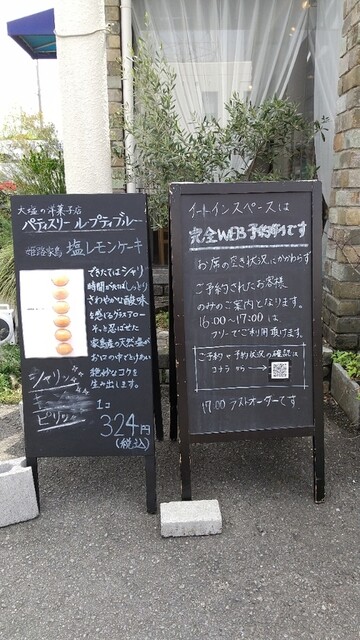 大塩の洋菓子店
パティスリー ル・プティブルー
姫路家島 塩レモンケーキ
できたてはシャリ
時間が経ればしっとり
さわやかな酸味
を感じるグラスアロー
そっと忍ばせた
家島産の天然塩が
お口の中でとけあい
絶妙なコクを
生み出します。
シャリッ
ピリッ
1コ
324円
(税込)
イートインスペースは
完全WEB予約制です
お席の空き状況にかかわらず
ご予約されたお客様
のみのご案内となります。
16:00〜17:00は
フリーでご利用頂けます。
ご予約や予約状況の確認は
コチラから→
17:00 ラストオーダーです